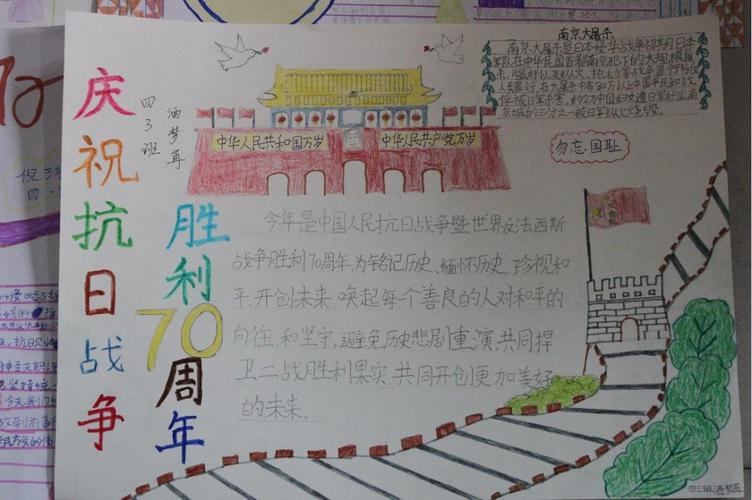 庆祝抗日战争
胜利70周年
四3班
中华人民共和国万岁 中华人民共产党万岁
南京大屠杀
南京大屠杀是日本侵华战争初期日本
军队在中华民国首都南京犯下的大规模屠
杀、强奸以及纵火、抢劫等战争罪行与反
人类罪行。在大屠杀中有30万以上中国平民和战
俘被日军杀害。约2万中国妇女遭日军奸淫,南
京城的三分之一被日军纵火烧毁。
勿忘国耻
今年是中国人民抗日战争暨世界反法西斯
战争胜利70周年,为铭记历史、缅怀历史、珍视和
平、开创未来、唤起每个善良的人对和平的
向往,和坚守,避免历史悲剧重演,共同捍
卫二战胜利果实,共同开创更加美好
的未来.